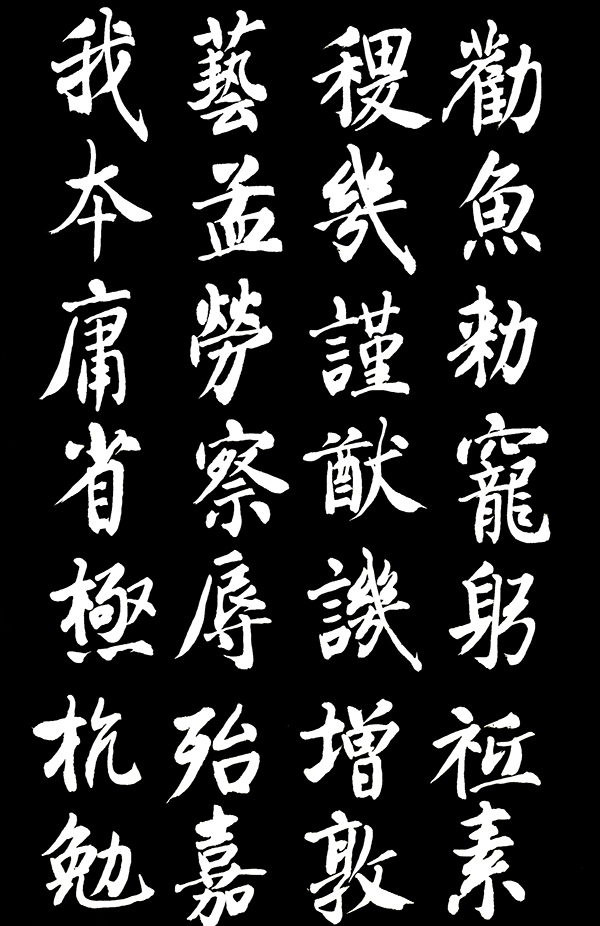 勸魚勑寵躬祗素
稷幾謹猷譏增敦
藝孟勞察辱殆嘉
我本庸省極杭勉